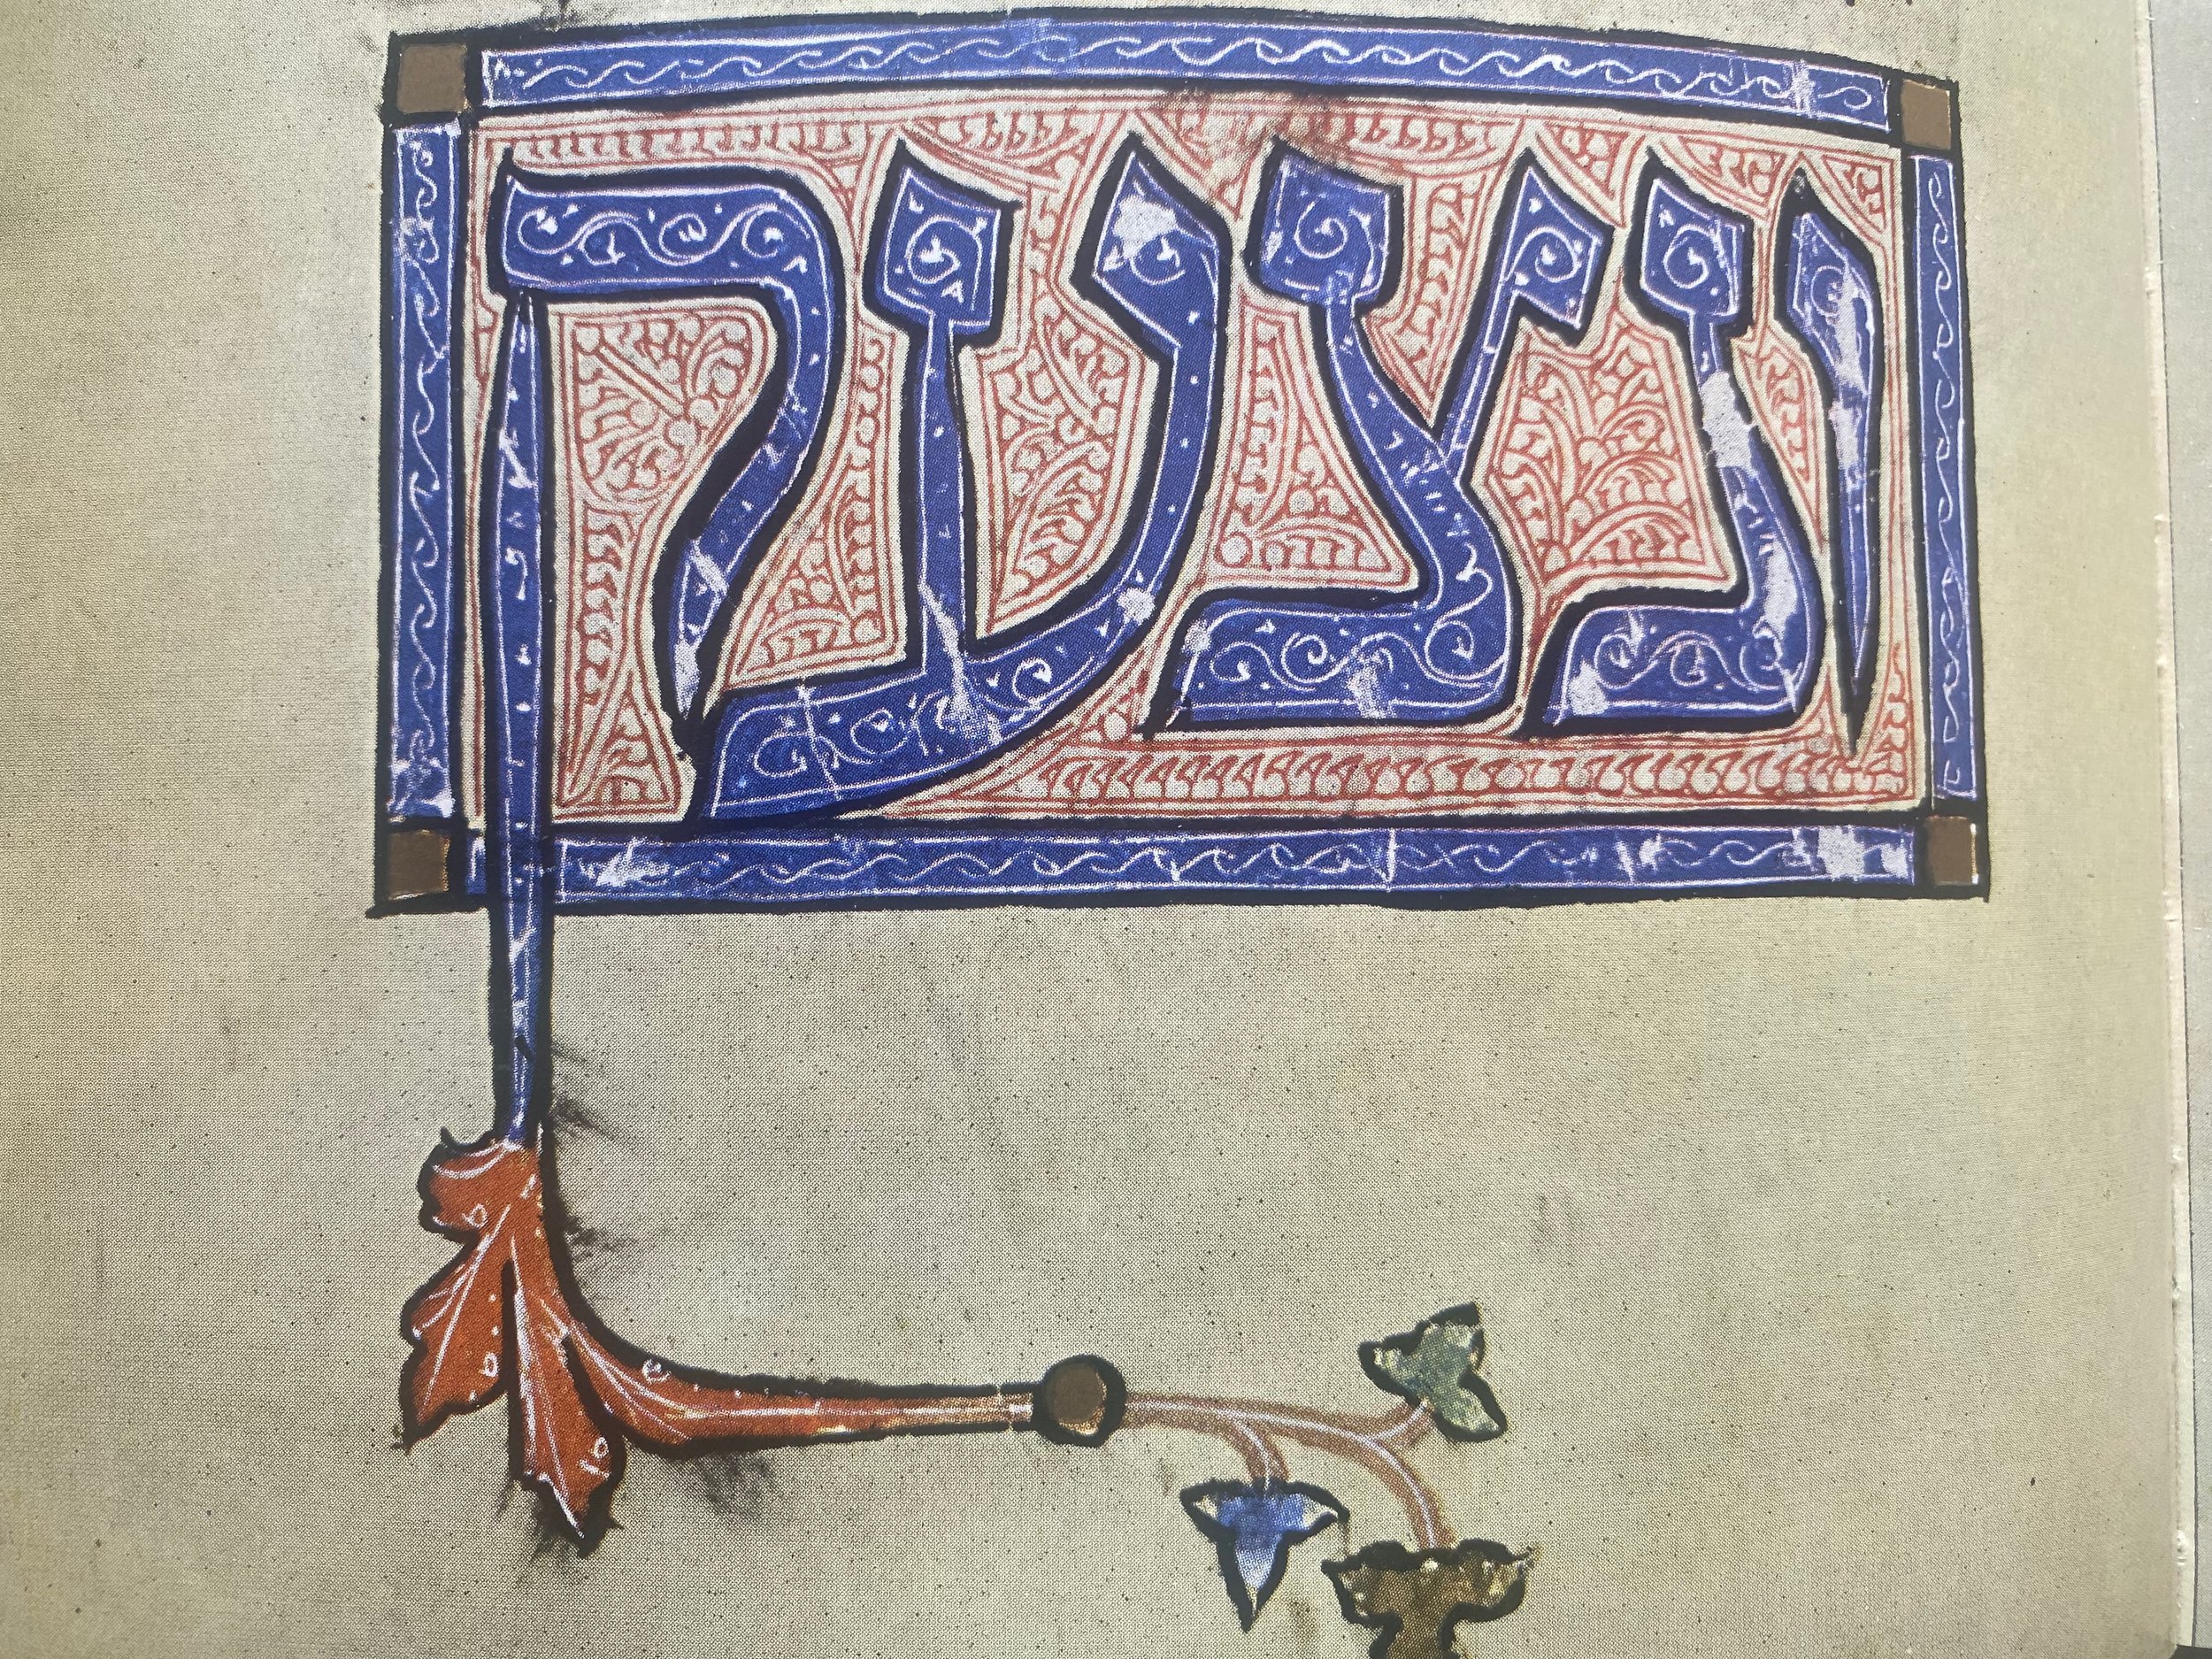 ונצעק